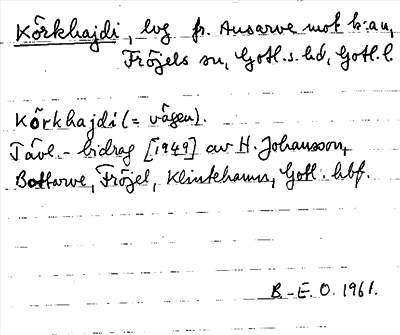 Körkhajdi, lvg fr. Ausarve mot k:an,
Fröjels sn, Gotl. s. hd, Gotl. l.
Körkhajdi (= vägen).
Tävl.-bidrag [1949] av H. Johansson,
Bottarve, Fröjel, Klintehamn, Gotl. hbf.
B-E. O. 1961.